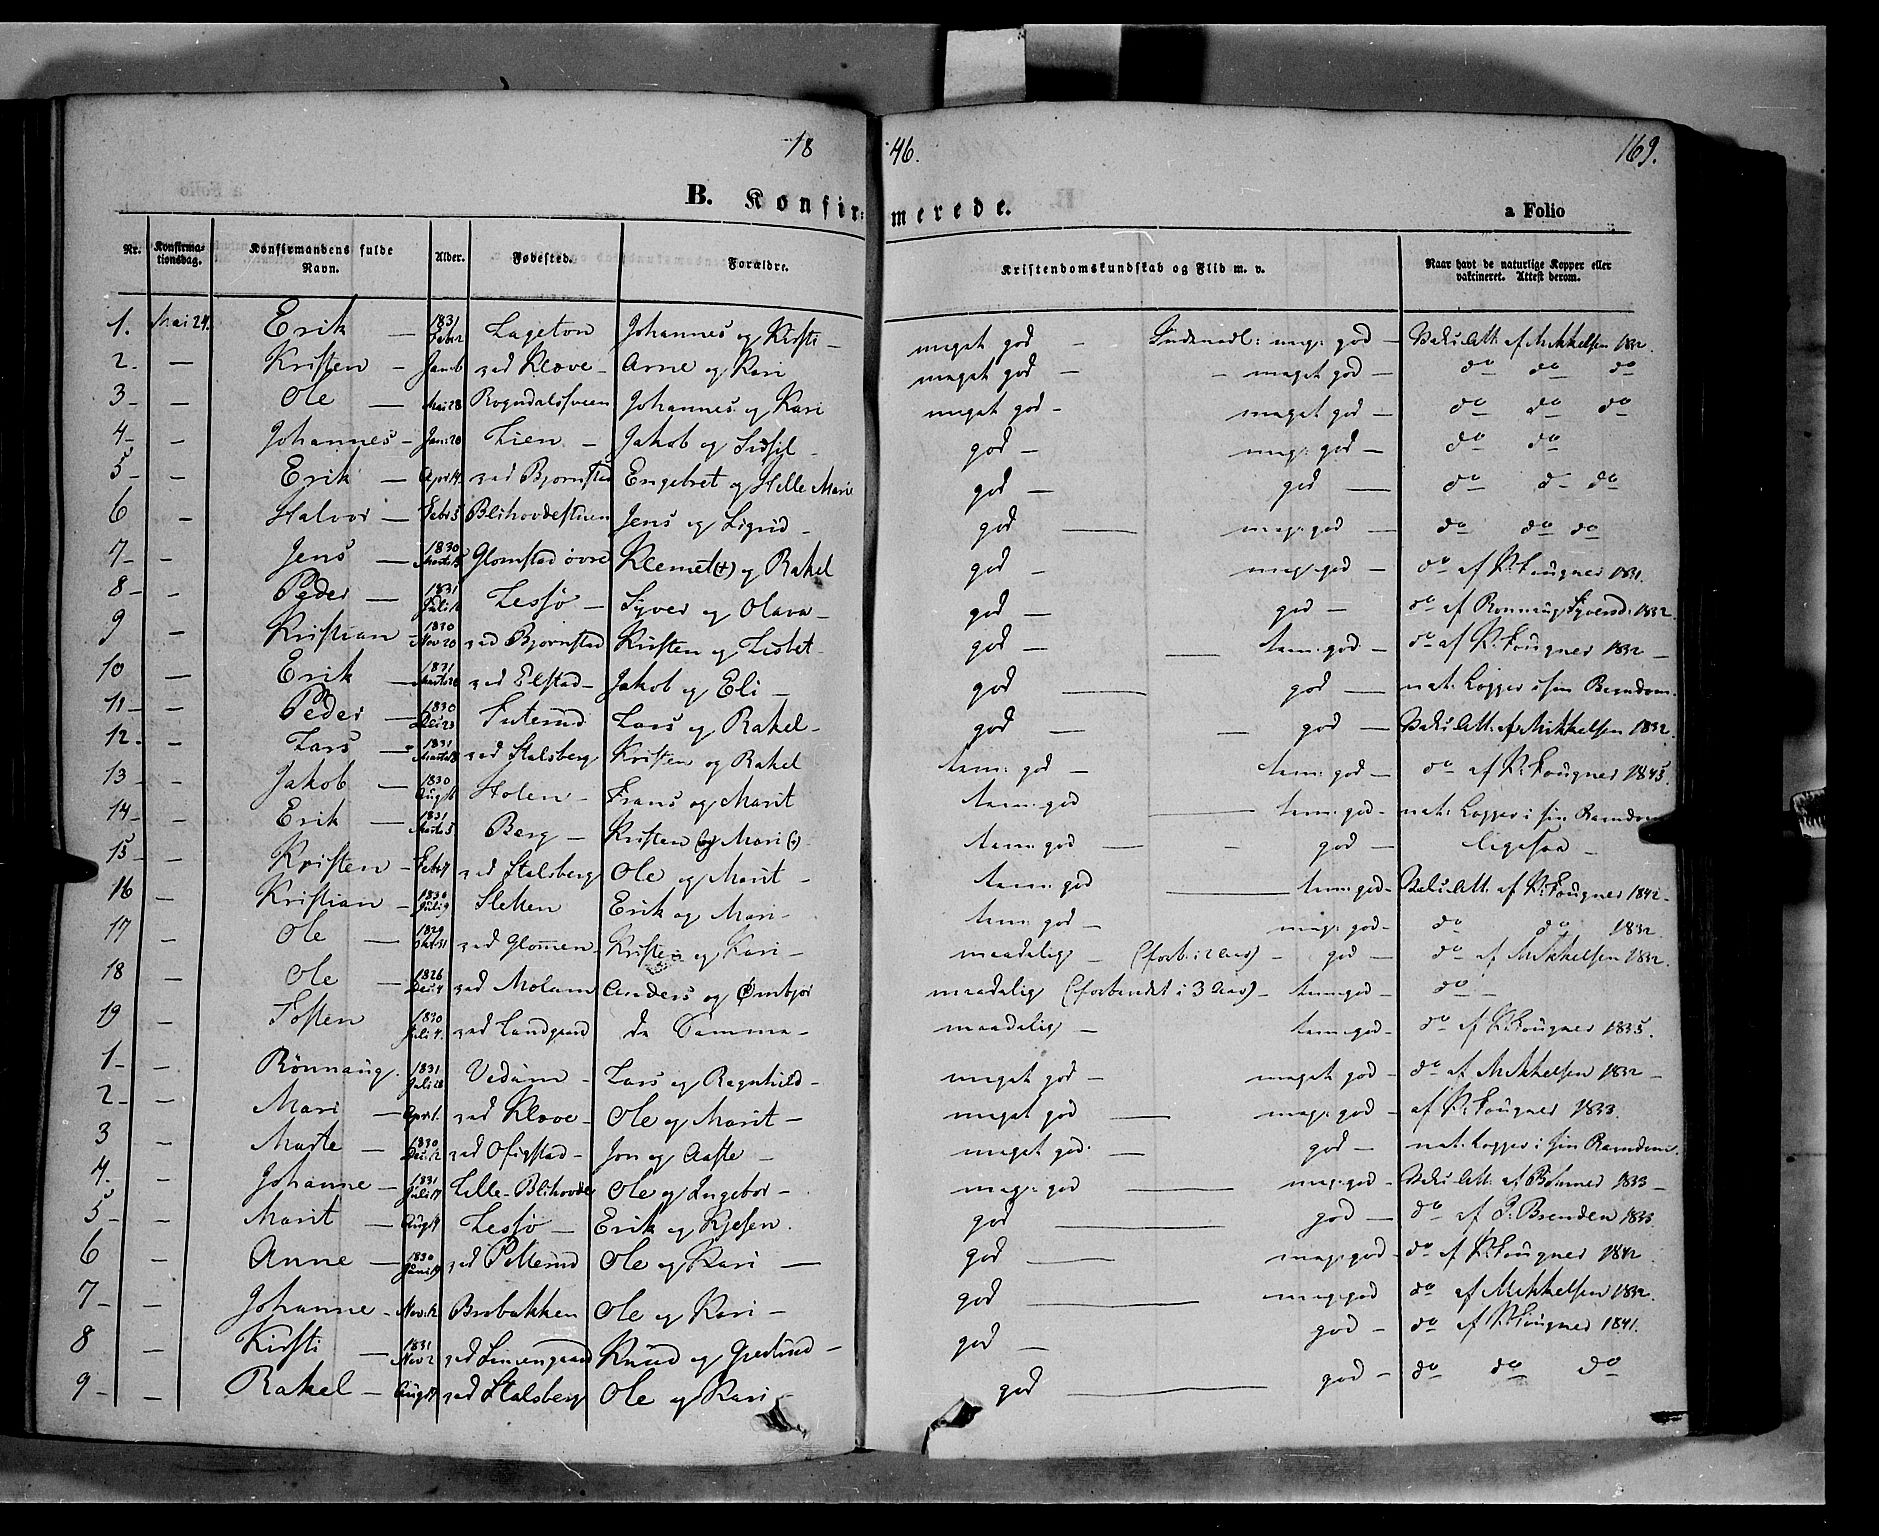 18 46. 169.
B. Konfirmerede. a Folio
Nr. Konfirmationsdag. Konfirmandens fulde Navn. Alder. Fødested. Forældre. Kristendomskundskab og Flid m. v. Naar havt de naturlige Kopper eller vaktineret. Attest derom.
1. Mai 24. Erik — 1831 Febr 2 Lageton Johannes og Kirsti — meget god — Sædvandl: meg: god — Vaks. Att. af Mikkelsen 1832.
2. — Kristen — Jan 6 ved Kløve — Arne og Kari meget god — — meget god — do do do
3 — — Ole — Mai 28 Rogndalssveen Johannes og Kari meget god — meget god — do do do
4 — — Johannes — Jan: 20 Lien — Jakob og Sidsil — god — meg: god — do do
5 — — Erik — April 4 ved Bjørnstad Engebret og Helle Marie god — god — do do do
6 — Halvor — Febr 5 Blihovdestuen Jens og Sigrid — god — meg: god — do do do
7 — — Jens — 1830 Glomstad øvre Klemet (+) og Rakel god — meg: god — do af K. Fougner 1831.
8 — — Peder — 1831 Juli Lessjö — Syver og Olava — god — god — do af Rønnaug Syversd: 1832
9 — Kristian — 1830 Nov 20 ved Bjørnstad Kristen og Lisbet — god — — tem: god — do af K. Fougner 1832 —
10 — Erik — 1831 ved Elstad — Jakob og Eli — god — god — nat: Kopper i sin Barndom.
11 — — Peder — 1830 Dec: 23 Futerud Lars og Rakel — god — — god — Vaks. Att. af Mikkelsen 1832.
12 — — Lars — 1831 ved Stalsberg Kristen og Rakel tem: god — tem: god — do af K. Fougner 1845.
13 — — Jakob — 1830 Aug: 16 Holen — Frans og Marit tem: god — tem: god — nat: Kopper i sin Barndom
14 — — Erik — 1831 Marts 5 Berg — Kristen og Mari tem: god — — god — ligesaa —
15 — — Kristen — Febr 4 ved Stalsberg Ole og Marit — tem: god — tem: god — Vaks. Att. af K. Fougner 1842 —
16 — Kristian — 1830 Juli 9 Sletten Erik og Mari — tem: god — meg: god — do do 1832
17 — Ole — 1829 Okt: 31 ved Glomen — Kristen og Kari — maadelig — (forb: i 2 Aar) — god — do af Mikkelsen 1832.
18 — Ole — 1826 Dec: 4 ved Molum Anders og Ømbjør maadelig (forberedet i 3 Aar) — tem: god — do —
19 — Tosten — 1830 Juli 4. ved Landgaard de Samme — maadelig — tem: god — do af K. Fougner 1835.
1 — — Rönnaug. 1831 Juli 28 Vedum — Lars og Ragnhild — meget god — meget god — do af Mikkelsen 1832 —
2 — — Mari — April 1. ved Kløve — Ole og Marit — meget god — meg: god — af K. Fougner 1833.
3 — Marte — 1830 Dec: 12 ved Ofigstad — Jon og Aaste — meget god — god — nat: Kopper i sin Barndom.
4. — Johanne — 1831 Juli 17 Lille-Blihovde Ole og Ingebor — meg: god — meg: god — Vaks. Att. af Böhmer 1833 —
5 — — Marit — Aug: 14 Lessjö — Erik og Kjesen. god — god — do af P. Brenden 1833.
6 — Anne — 1830 Juni 19 ved Pellerud Ole og Kari — god — meg: god — do af K. Fougner 1842
7 — — Johanne — Nov: 12 Brobakken Ole og Kari — god — meg: god do af Mikkelsen 1832.
8 — Kirsti — 1831 Nov 2 ved Linsengaard Knud og Gjertrud — god — god — do af K. Fougner 1841.
9 — — Rakel — Aug: 17 ved Stalsberg Ole og Kari — god — god — do do do